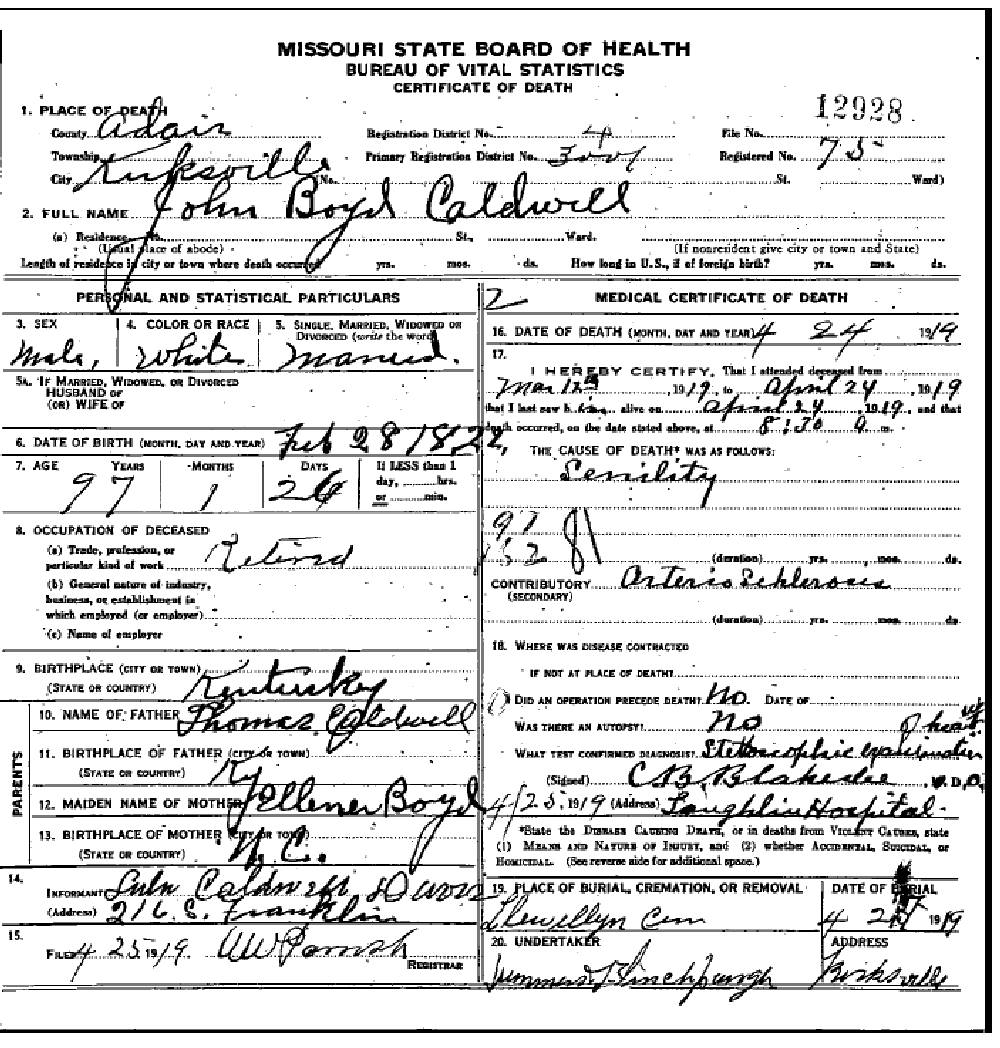 MISSOURI STATE BOARD OF HEALTH
BUREAU OF VITAL STATISTICS
CERTIFICATE OF DEATH
12928
1. PLACE OF DEATH
County Adair Registration District No. 4 File No.
Township Primary Registration District No. 3001 Registered No. 75
City Kirksville (No. St. Ward)
2. FULL NAME John Boyd Caldwell
(a) Residence. No. St., Ward.
(Usual place of abode) (If nonresident give city or town and State)
Length of residence in city or town where death occurred yrs. mos. ds. How long in U.S., if of foreign birth? yrs. mos. ds.
PERSONAL AND STATISTICAL PARTICULARS
3. SEX 4. COLOR OR RACE 5. SINGLE, MARRIED, WIDOWED OR DIVORCED (write the word)
Male, White Married.
5A. IF MARRIED, WIDOWED, OR DIVORCED
HUSBAND OF
(OR) WIFE OF
6. DATE OF BIRTH (MONTH, DAY AND YEAR) Feb 28 1822,
7. AGE YEARS MONTHS DAYS If LESS than 1
day, hrs.
or min.
97 1 26
8. OCCUPATION OF DECEASED
(a) Trade, profession, or
particular kind of work Retired
(b) General nature of industry,
business, or establishment in
which employed (or employer)
(c) Name of employer
9. BIRTHPLACE (CITY OR TOWN)
(STATE OR COUNTRY) Kentuckey
PARENTS
10. NAME OF FATHER Thomas Caldwell
11. BIRTHPLACE OF FATHER (CITY OR TOWN)
(STATE OR COUNTRY) Ky
12. MAIDEN NAME OF MOTHER Boyd
13. BIRTHPLACE OF MOTHER (CITY OR TOWN)
(STATE OR COUNTRY) N.C.
14.
INFORMANT Lulu Caldwell
(Address) 216 S. Franklin
15.
FILED 4 25 1919. REGISTRAR
2 MEDICAL CERTIFICATE OF DEATH
16. DATE OF DEATH (MONTH, DAY AND YEAR) 4 24 1919
17.
I HEREBY CERTIFY, That I attended deceased from
Mar 12th, 1919, to April 24, 1919
that I last saw him alive on April 24, 1919, and that
death occurred, on the date stated above, at 8:30 m.
THE CAUSE OF DEATH* WAS AS FOLLOWS:
Senility
97
152 81
(duration) yrs. mos. ds.
CONTRIBUTORY Arterio Schlerosis
(SECONDARY)
(duration) yrs. mos. ds.
18. WHERE WAS DISEASE CONTRACTED
IF NOT AT PLACE OF DEATH?
DID AN OPERATION PRECEDE DEATH? No. DATE OF
WAS THERE AN AUTOPSY? No of heart
WHAT TEST CONFIRMED DIAGNOSIS? Stethoscophic examination
(Signed) C.B. Blakeslee, D.O.
4/25, 1919 (Address) Laughlin Hospital
*State the DISEASE CAUSING DEATH, or in deaths from VIOLENT CAUSES, state
(1) MEANS AND NATURE OF INJURY, and (2) whether ACCIDENTAL, SUICIDAL, or
HOMICIDAL. (See reverse side for additional space.)
19. PLACE OF BURIAL, CREMATION, OR REMOVAL DATE OF BURIAL
Llewellyn Cem 4 1919
20. UNDERTAKER ADDRESS
Kirksville